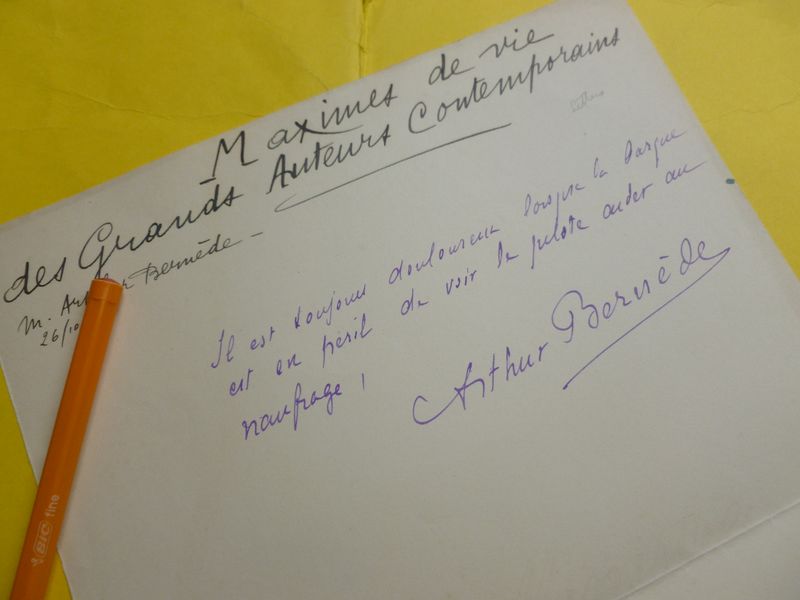 Maximes de vie
des Grands Auteurs Contemporains
M. Arthur Bernède -
26/10
Il est toujours douloureux lorsque la barque
est en péril de voir le pilote aider au
naufrage !
Arthur Bernède
BIC fine